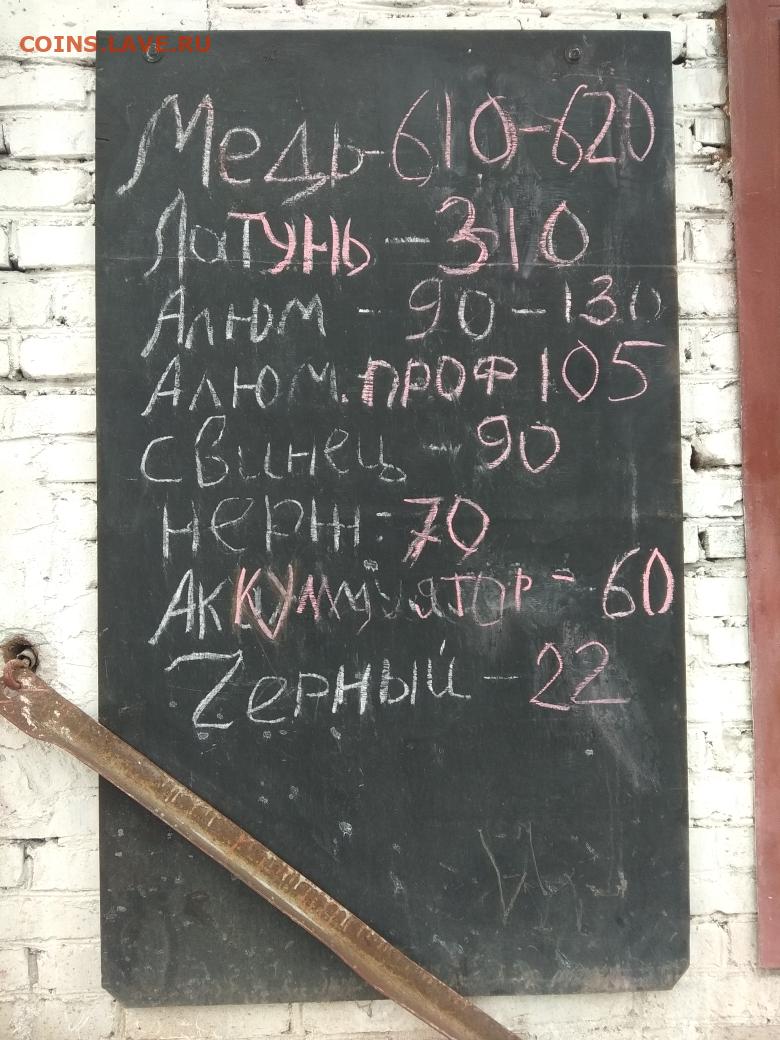 COINS.LAVE.RU
Медь-610-620
Латунь - 310
Алюм - 90-130
Алюм.проф 105
свинец - 90
нерж: 70
Аккумулятор - 60
Zерный - 22